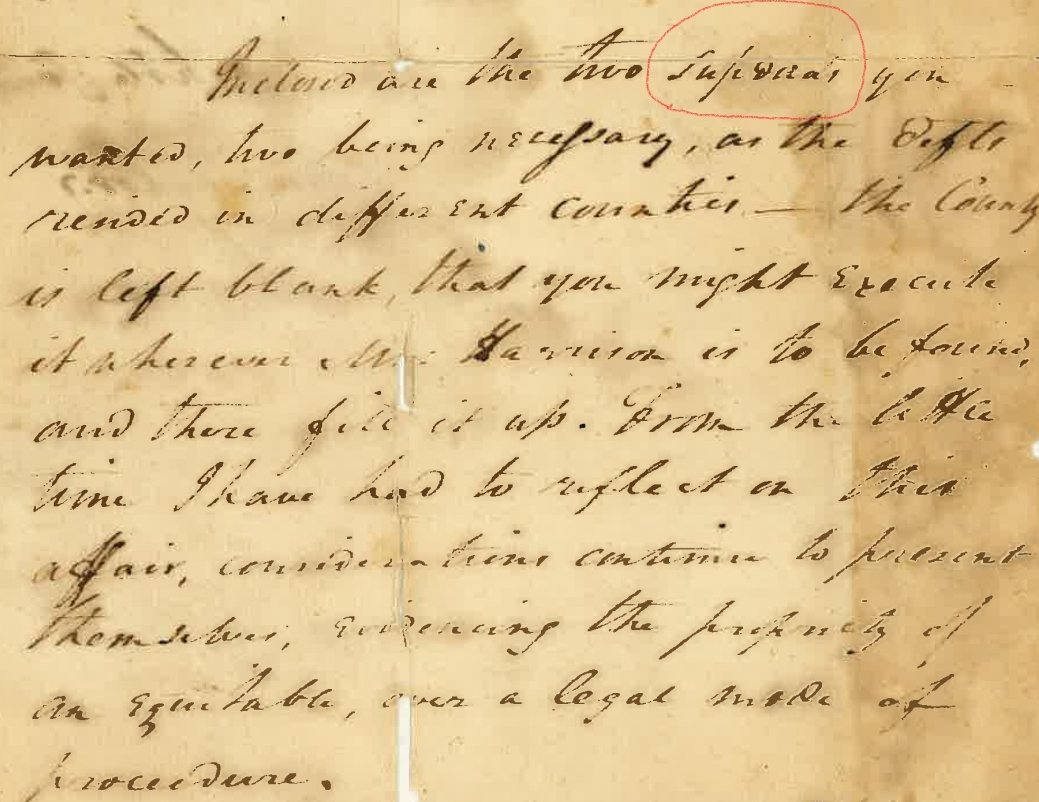 Inclosed are the two supœnas you
wanted, two being necessary, as the Defts
resided in different counties — the County
is left blank, that you might Execute
it wherever Mr. Harrison is to be found,
and there fill it up. From the little
time I have had to reflect on this
affair, considerations continue to present
themselves, evidencing the propriety of
an equitable, over a legal mode of
proceedure.